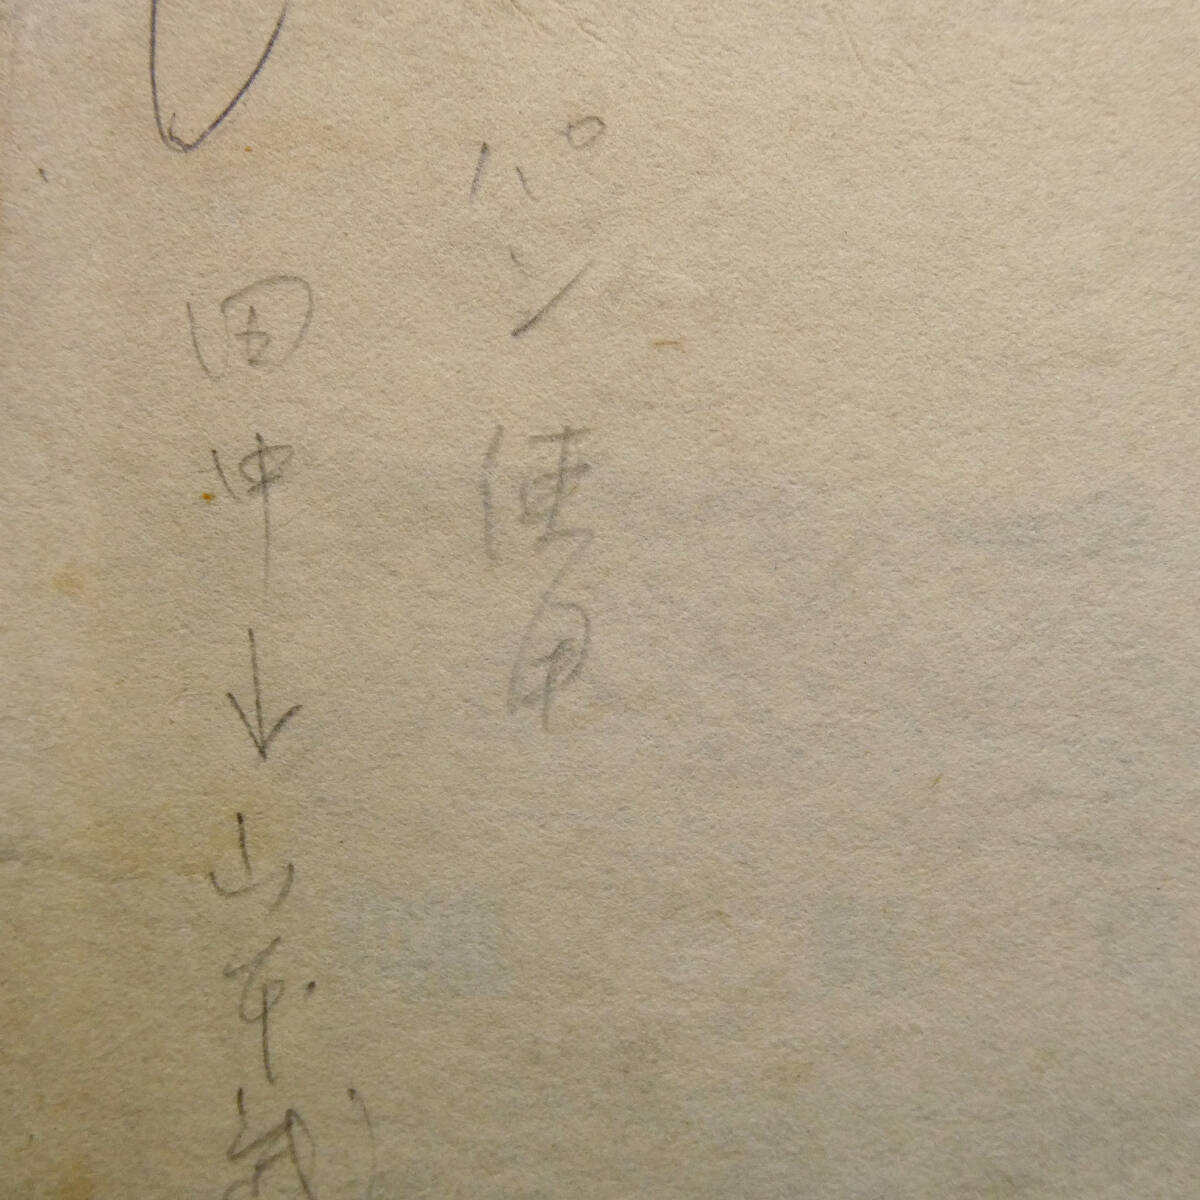 パン使用
田中→山本